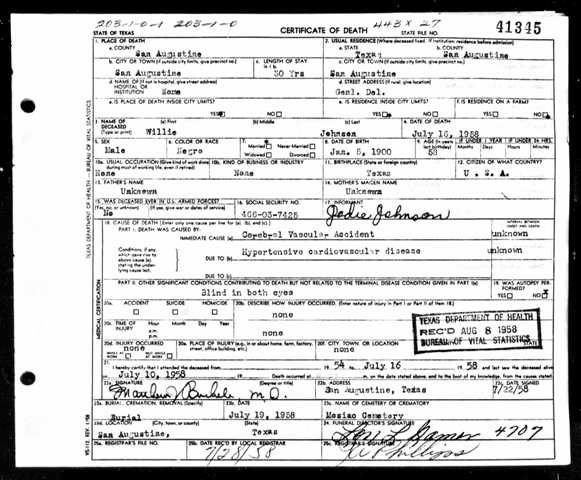 203-1-0-1 203-1-0
443 X 27
STATE OF TEXAS
CERTIFICATE OF DEATH
STATE FILE NO.
41345
1. PLACE OF DEATH
a. COUNTY
San Augustine
2. USUAL RESIDENCE (Where deceased lived. If institution: residence before admission)
a. STATE
Texas
b. COUNTY
San Augustine
b. CITY OR TOWN (If outside city limits, give precinct no.)
San Augustine
c. LENGTH OF STAY
in 1 b.
30 Yrs
c. CITY OR TOWN (If outside city limits, give precinct no.)
San Augustine
d. NAME OF (If not in hospital, give street address)
HOSPITAL OR
INSTITUTION
None
d. STREET ADDRESS (If rural, give location)
Genl. Del.
e. IS PLACE OF DEATH INSIDE CITY LIMITS?
YES NO
e. IS RESIDENCE INSIDE CITY LIMITS?
YES NO
f. IS RESIDENCE ON A FARM?
YES NO
3. NAME OF
DECEASED
(Type or print)
(a) First
Willie
(b) Middle
(c) Last
Johnson
4. DATE OF DEATH
July 16, 1958
5. SEX
Male
6. COLOR OR RACE
Negro
7.
Married Never Married
Widowed Divorced
8. DATE OF BIRTH
Jan. 5, 1900
9. AGE (In years
last birthday)
58
IF UNDER 1 YEAR
Months Days
IF UNDER 24 HRS.
Hours Min.
10a. USUAL OCCUPATION (Give kind of work done
during most of working life, even if retired)
None
10b. KIND OF BUSINESS OR INDUSTRY
None
11. BIRTHPLACE (State or foreign country)
Texas
12. CITIZEN OF WHAT COUNTRY?
U. S. A.
13. FATHER'S NAME
Unknown
14. MOTHER'S MAIDEN NAME
Unknown
15. WAS DECEASED EVER IN U.S. ARMED FORCES?
(Yes, no, or unknown) (If yes, give war or dates of service)
No
16. SOCIAL SECURITY NO.
466-03-7425
17. INFORMANT
Jodie Johnson
18. CAUSE OF DEATH (Enter only one cause per line for (a), (b), and (c).)
PART I. DEATH WAS CAUSED BY:
IMMEDIATE CAUSE (a)
Cerebral Vascular Accident
INTERVAL BETWEEN
ONSET AND DEATH
unknown
Conditions, if any,
which gave rise to
above cause (a)
stating the under-
lying cause last.
DUE TO (b)
Hypertensive cardiovascular disease
unknown
DUE TO (c)
PART II. OTHER SIGNIFICANT CONDITIONS CONTRIBUTING TO DEATH BUT NOT RELATED TO THE TERMINAL DISEASE CONDITION GIVEN IN PART I(a)
Blind in both eyes
19. WAS AUTOPSY PER-
FORMED?
YES NO
20a. ACCIDENT SUICIDE HOMICIDE
20b. DESCRIBE HOW INJURY OCCURRED. (Enter nature of injury in Part I or Part II of item 18.)
none
20c. TIME OF
INJURY
Hour Month Day Year
a.m.
p.m.
none
TEXAS DEPARTMENT OF HEALTH
REC'D AUG 8 1958
BUREAU OF VITAL STATISTICS
20d. INJURY OCCURRED
none
WHILE AT WORK
NOT WHILE AT WORK
20e. PLACE OF INJURY (e.g., in or about home, farm, factory,
street, office building, etc.)
none
20f. CITY, TOWN, OR LOCATION
none
STATE
I hereby certify that I attended the deceased from
54 to July 16 58 and last saw the deceased alive
on July 10, 1958
Death occurred at m. on the date stated above, and to the best of my knowledge, from the causes stated.
22a. SIGNATURE
(Degree or title)
M.D.
22b. ADDRESS
San Augustine, Texas
22c. DATE SIGNED
7/22/58
23a. BURIAL, CREMATION, REMOVAL (Specify)
Burial
23b. DATE
July 19, 1958
23c. NAME OF CEMETERY OR CREMATORY
Mosiac Cemetery
23d. LOCATION (City, town, or county) (State)
San Augustine, Texas
24. FUNERAL DIRECTOR'S SIGNATURE
4707
Phillips
25a. REGISTRAR'S FILE NO.
25b. DATE REC'D BY LOCAL REGISTRAR
7/28/58
25c. REGISTRAR'S SIGNATURE
TEXAS DEPARTMENT OF HEALTH — BUREAU OF VITAL STATISTICS
MEDICAL CERTIFICATION